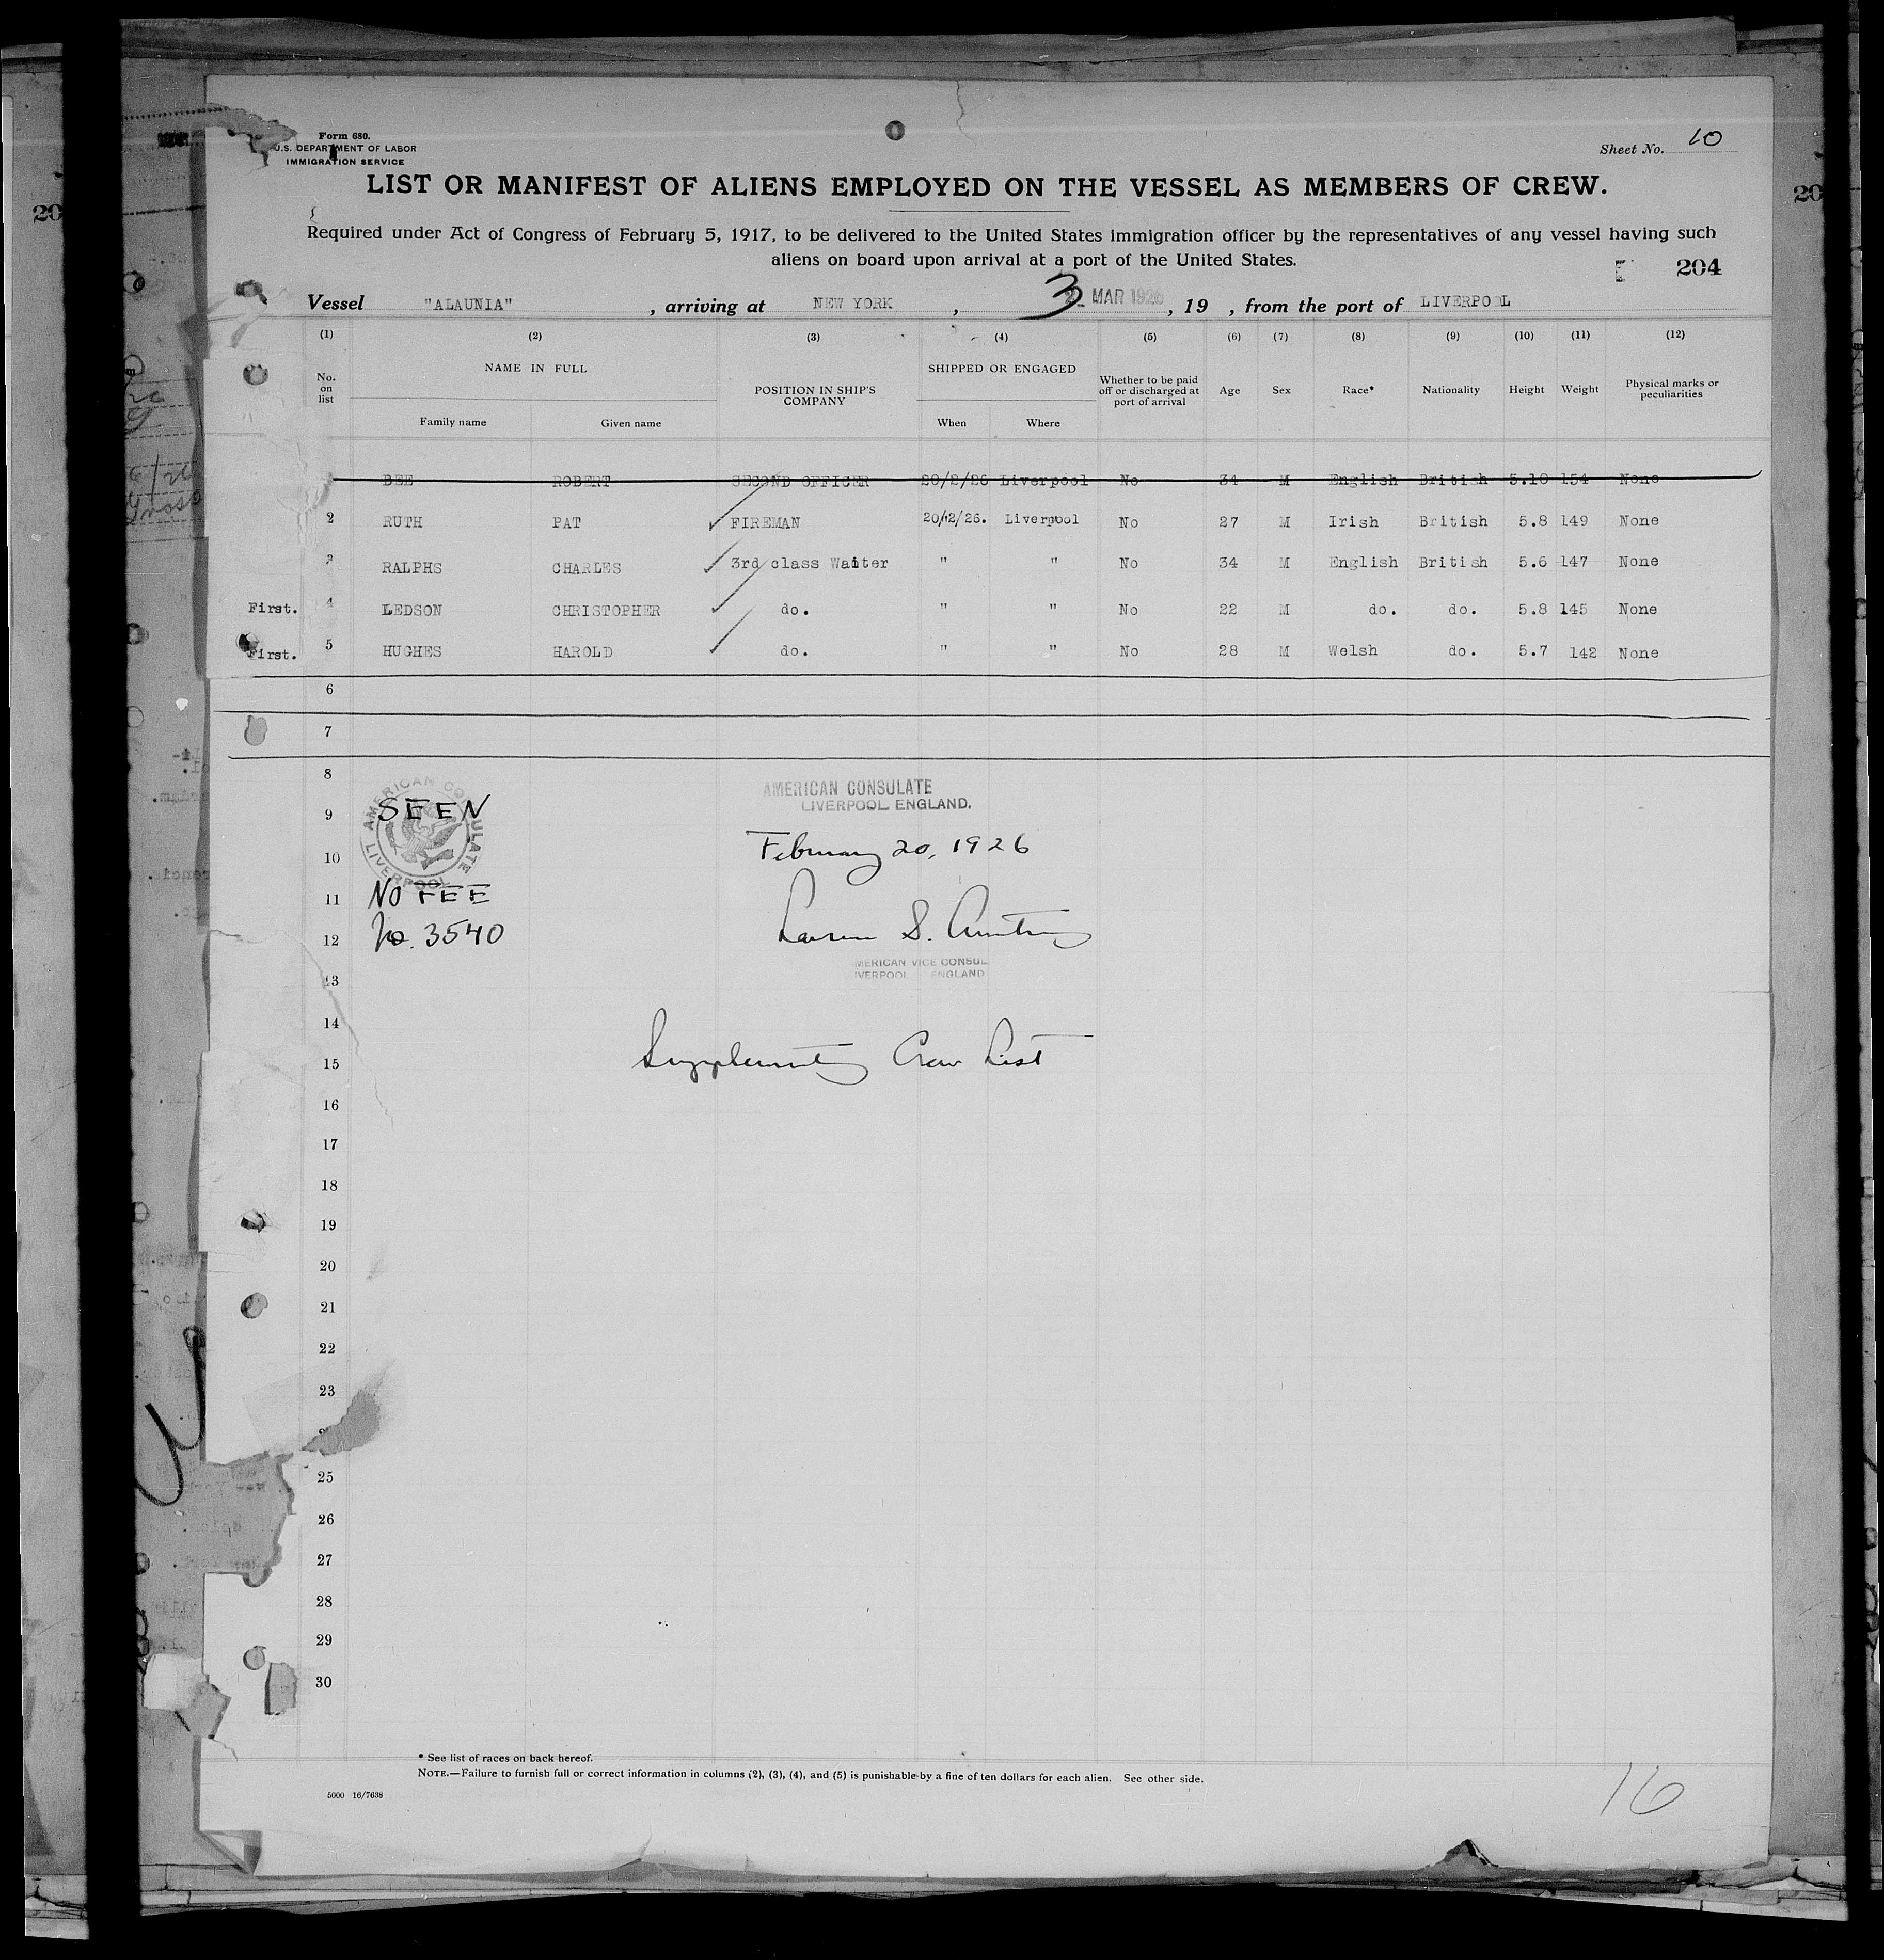 Form 680.
U.S. DEPARTMENT OF LABOR
IMMIGRATION SERVICE
Sheet No. 10
LIST OR MANIFEST OF ALIENS EMPLOYED ON THE VESSEL AS MEMBERS OF CREW.
Required under Act of Congress of February 5, 1917, to be delivered to the United States immigration officer by the representatives of any vessel having such
aliens on board upon arrival at a port of the United States.
204
Vessel "ALAUNIA" , arriving at NEW YORK , 3 MAR 1926 , 19 , from the port of LIVERPOOL
(1) (2) (3) (4) (5) (6) (7) (8) (9) (10) (11) (12)
No. on list
NAME IN FULL
Family name Given name
POSITION IN SHIP'S COMPANY
SHIPPED OR ENGAGED
When Where
Whether to be paid off or discharged at port of arrival
Age Sex Race* Nationality Height Weight
Physical marks or peculiarities
BEE ROBERT SECOND OFFICER 20/2/26 Liverpool No 34 M English British 5.10 154 None
2 RUTH PAT FIREMAN 20/2/26. Liverpool No 27 M Irish British 5.8 149 None
3 RALPHS CHARLES 3rd class Waiter " " No 34 M English British 5.6 147 None
First. 4 LEDSON CHRISTOPHER do. " " No 22 M do. do. 5.8 145 None
First. 5 HUGHES HAROLD do. " " No 28 M Welsh do. 5.7 142 None
6
7
8
AMERICAN CONSULATE
LIVERPOOL ENGLAND.
9
SEEN
AMERICAN CONSULATE LIVERPOOL
10
February 20, 1926
11
NO FEE
12
No. 3540
S.
AMERICAN VICE CONSUL
LIVERPOOL ENGLAND
13
14
15
Supplementary Crew List
16
17
18
19
20
21
22
23
25
26
27
28
29
30
* See list of races on back hereof.
NOTE.—Failure to furnish full or correct information in columns (2), (3), (4), and (5) is punishable by a fine of ten dollars for each alien. See other side.
5000 16/7638
16